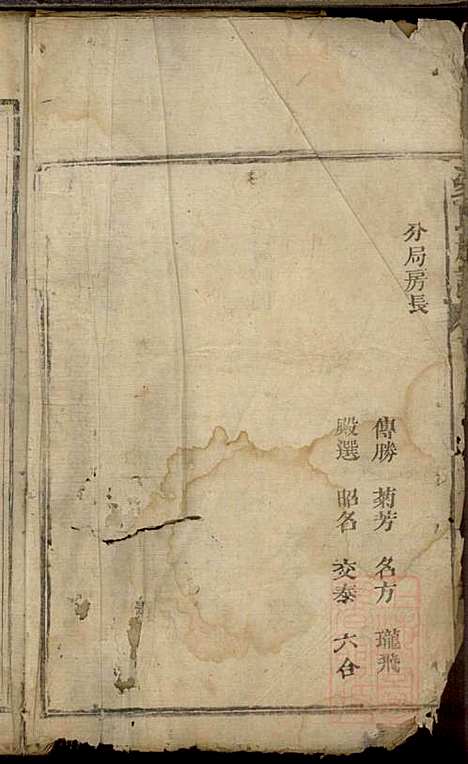 分局房長
傳勝 菊芳 名方 瓏飛
殿選 昭名 交泰 六合